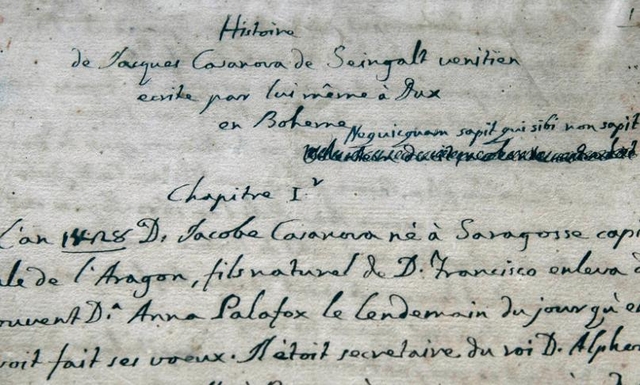 Histoire
de Jacques Casanova de Seingalt venitien
ecrite par lui même à Dux
en Boheme
Nequicquam sapit qui sibi non sapit
Chapitre I.r
L'an 1428 D. Jacobe Casanova né à Saragosse capi
ale de l'Aragon, fils naturel de D. Francisco enleva d
ouvent D.a Anna Palafox le lendemain du jour qu'e
voit fait ses voeux. Il étoit secretaire du roi D. Alphon